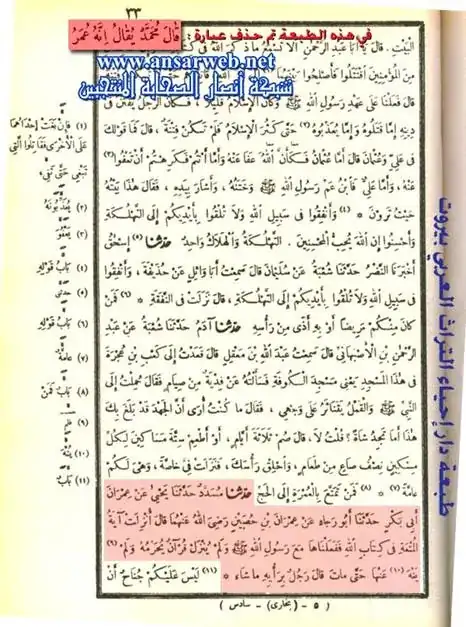 ٣٣
في هذه الطبعة تم حذف عبارة : قَالَ مُحَمَّدٌ يُقَالُ إِنَّهُ عُمَرُ
www.ansarweb.net
شبكة أنصار الصحابة المنتجبين
الْبَيْتِ . قَالَ يَا أَبَا عَبْدِ الرَّحْمٰنِ أَلَا تَسْمَعُ مَا ذَكَرَ اللّٰهُ فِي
مِنَ الْمُؤْمِنِينَ اقْتَتَلُوا فَأَصْلِحُوا بَيْنَهُمَا
قَالَ فَعَلْنَا عَلَى عَهْدِ رَسُولِ اللّٰهِ ﷺ وَكَانَ الْإِسْلَامُ قَلِيلًا فَكَانَ الرَّجُلُ يُفْتَنُ فِي
دِينِهِ إِمَّا قَتَلُوهُ وَإِمَّا يُعَذِّبُوهُ (٢) حَتَّى كَثُرَ الْإِسْلَامُ فَلَمْ تَكُنْ فِتْنَةٌ ، قَالَ فَمَا قَوْلُكَ
فِي عَلِيٍّ وَعُثْمَانَ قَالَ أَمَّا عُثْمَانُ فَكَأَنَّ اللّٰهَ عَفَا عَنْهُ وَأَمَّا أَنْتُمْ فَكَرِهْتُمْ أَنْ تَعْفُوا (٣)
عَنْهُ ، وَأَمَّا عَلِيٌّ فَابْنُ عَمِّ رَسُولِ اللّٰهِ ﷺ وَخَتَنُهُ ، وَأَشَارَ بِيَدِهِ ، فَقَالَ هٰذَا بَيْتُهُ
حَيْثُ تَرَوْنَ * (٤) وَأَنْفِقُوا فِي سَبِيلِ اللّٰهِ وَلَا تُلْقُوا بِأَيْدِيكُمْ إِلَى التَّهْلُكَةِ
وَأَحْسِنُوا إِنَّ اللّٰهَ يُحِبُّ الْمُحْسِنِينَ . التَّهْلُكَةُ وَالْهَلَاكُ وَاحِدٌ حدثنا (٥) إِسْحٰقُ
أَخْبَرَنَا النَّضْرُ حَدَّثَنَا شُعْبَةُ عَنْ سُلَيْمَانَ قَالَ سَمِعْتُ أَبَا وَائِلٍ عَنْ حُذَيْفَةَ ، وَأَنْفِقُوا
فِي سَبِيلِ اللّٰهِ وَلَا تُلْقُوا بِأَيْدِيكُمْ إِلَى التَّهْلُكَةِ ، قَالَ نَزَلَتْ فِي النَّفَقَةِ * (٦) فَمَنْ
كَانَ مِنْكُمْ مَرِيضًا أَوْ بِهِ أَذًى مِنْ رَأْسِهِ حدثنا آدَمُ حَدَّثَنَا شُعْبَةُ عَنْ عَبْدِ
الرَّحْمٰنِ بْنِ الْأَصْبَهَانِيِّ قَالَ سَمِعْتُ عَبْدَ اللّٰهِ بْنَ مَعْقِلٍ قَالَ قَعَدْتُ إِلَى كَعْبِ بْنِ عُجْرَةَ
فِي هٰذَا الْمَسْجِدِ يَعْنِي مَسْجِدَ الْكُوفَةِ فَسَأَلْتُهُ عَنْ فِدْيَةٌ مِنْ صِيَامٍ فَقَالَ حُمِلْتُ إِلَى
النَّبِيِّ ﷺ وَالْقَمْلُ يَتَنَاثَرُ عَلَى وَجْهِي ، فَقَالَ مَا كُنْتُ أُرَى أَنَّ الْجَهْدَ قَدْ بَلَغَ بِكَ
هٰذَا أَمَا تَجِدُ شَاةً ؟ قُلْتُ لَا ، قَالَ صُمْ ثَلَاثَةَ أَيَّامٍ ، أَوْ أَطْعِمْ سِتَّةَ مَسَاكِينَ لِكُلِّ
مِسْكِينٍ نِصْفُ صَاعٍ مِنْ طَعَامٍ ، وَاحْلِقْ رَأْسَكَ ، فَنَزَلَتْ فِيَّ خَاصَّةً ، وَهِيَ لَكُمْ
عَامَّةً (٧) * (٨) فَمَنْ تَمَتَّعَ بِالْعُمْرَةِ إِلَى الْحَجِّ حدثنا مُسَدَّدٌ حَدَّثَنَا يَحْيٰى عَنْ عِمْرَانَ
أَبِي بَكْرٍ حَدَّثَنَا أَبُو رَجَاءٍ عَنْ عِمْرَانَ بْنِ حُصَيْنٍ رَضِيَ اللّٰهُ عَنْهُمَا قَالَ أُنْزِلَتْ آيَةُ
الْمُتْعَةِ فِي كِتَابِ اللّٰهِ فَفَعَلْنَاهَا مَعَ رَسُولِ اللّٰهِ ﷺ وَلَمْ يُنْزَلْ قُرْآنٌ يُحَرِّمُهُ وَلَمْ (٩)
يَنْهَ (١٠) عَنْهَا حَتَّى مَاتَ قَالَ رَجُلٌ بِرَأْيِهِ مَا شَاءَ * (١١) لَيْسَ عَلَيْكُمْ جُنَاحٌ أَنْ
( ٥ - (بخارى) - سادس )
(١) فَإِنْ بَغَتْ إِحْدَاهُمَا
عَلَى الْأُخْرَى فَقَاتِلُوا الَّتِي
تَبْغِي حَتَّى تَفِيءَ
(٢) يُعَذِّبُونَهُ
(٣) يَعْفُوَ
(٤) بَابُ قَوْلِهِ
(٥) حدثني
(٦) بَابُ قَوْلِهِ
(٧) عَامَّةً
(٨) بَابُ فَمَنْ
(٩)
(١٠) يُنْهَ
(١١) بَابُ
طبعة دار إحياء التراث العربي بيروت